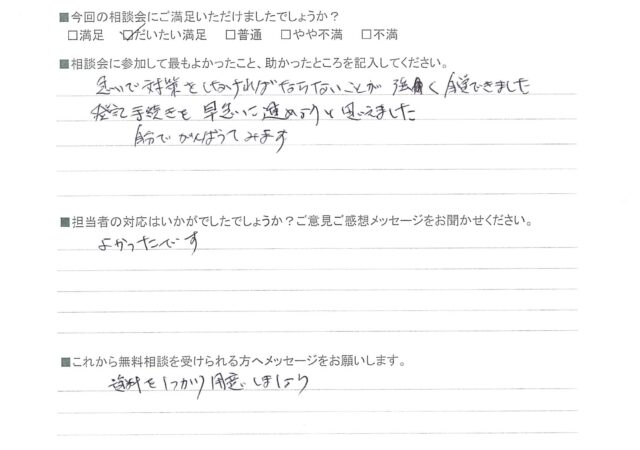 ■今回の相談会にご満足いただけましたでしょうか？
□満足 ☑だいたい満足 □普通 □やや不満 □不満
■相談会に参加して最もよかったこと、助かったところを記入してください。
急いで対策をしなければならないことが強く自覚できました
登記手続きを早急に進めようと思えました
自分でがんばってみます
■担当者の対応はいかがでしたでしょうか？ご意見ご感想メッセージをお聞かせください。
よかったです
■これから無料相談を受けられる方へメッセージをお願いします。
資料をしっかり用意しましょう